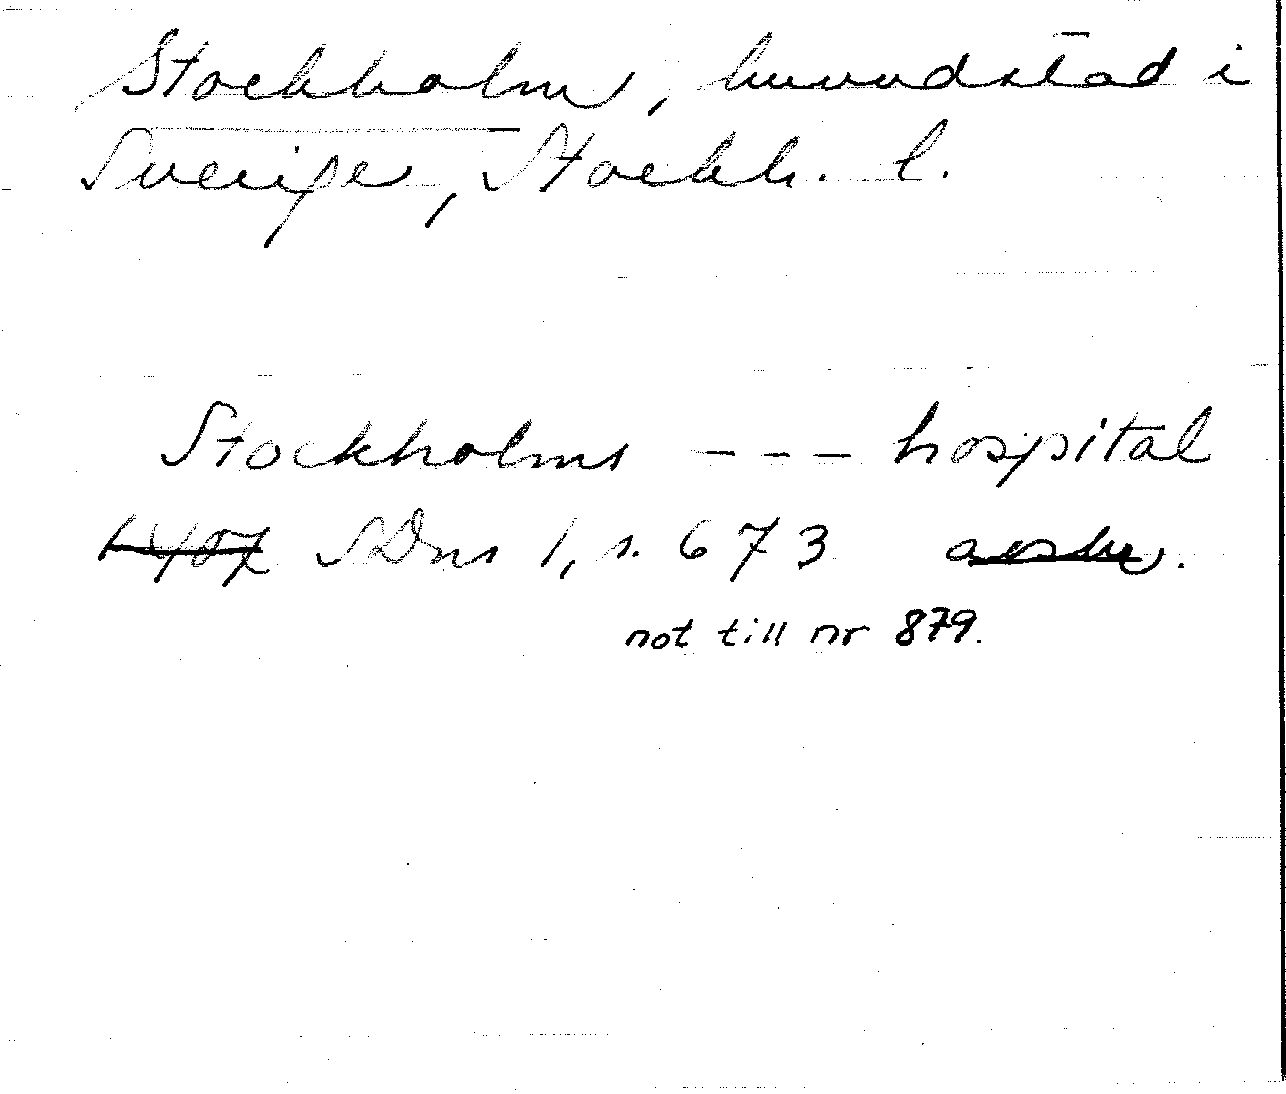 Stockholm, huvudstad i
Sverige, Stockh. l.
Stockholms --- hospital
1407 SDns 1, s. 673
not till nr 879.